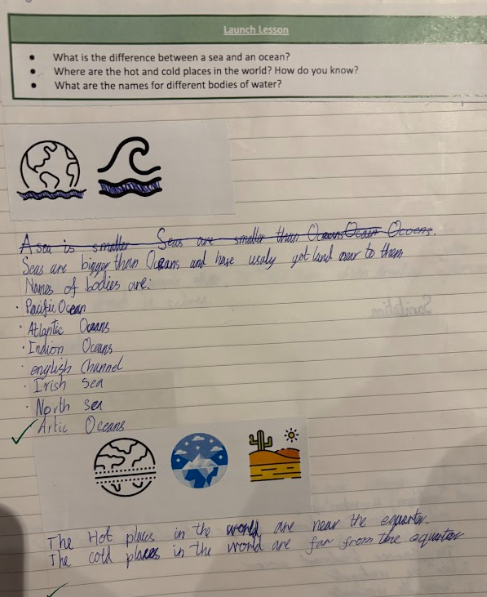 Launch Lesson
• What is the difference between a sea and an ocean?
• Where are the hot and cold places in the world? How do you know?
• What are the names for different bodies of water?
A sea is smaller Seas are smaller than Oceans Ocean Oceens.
Seas are bigger than Oceans and have usaly got land near to them
Names of bodies are:
· Pacific Ocean
· Atlantic Oceans
· Indian Oceans
· english Channel
· Irish Sea
· North sea
· Artic Oceans
The Hot places in the world are near the equartor.
The cold places in the world are far from the equartor